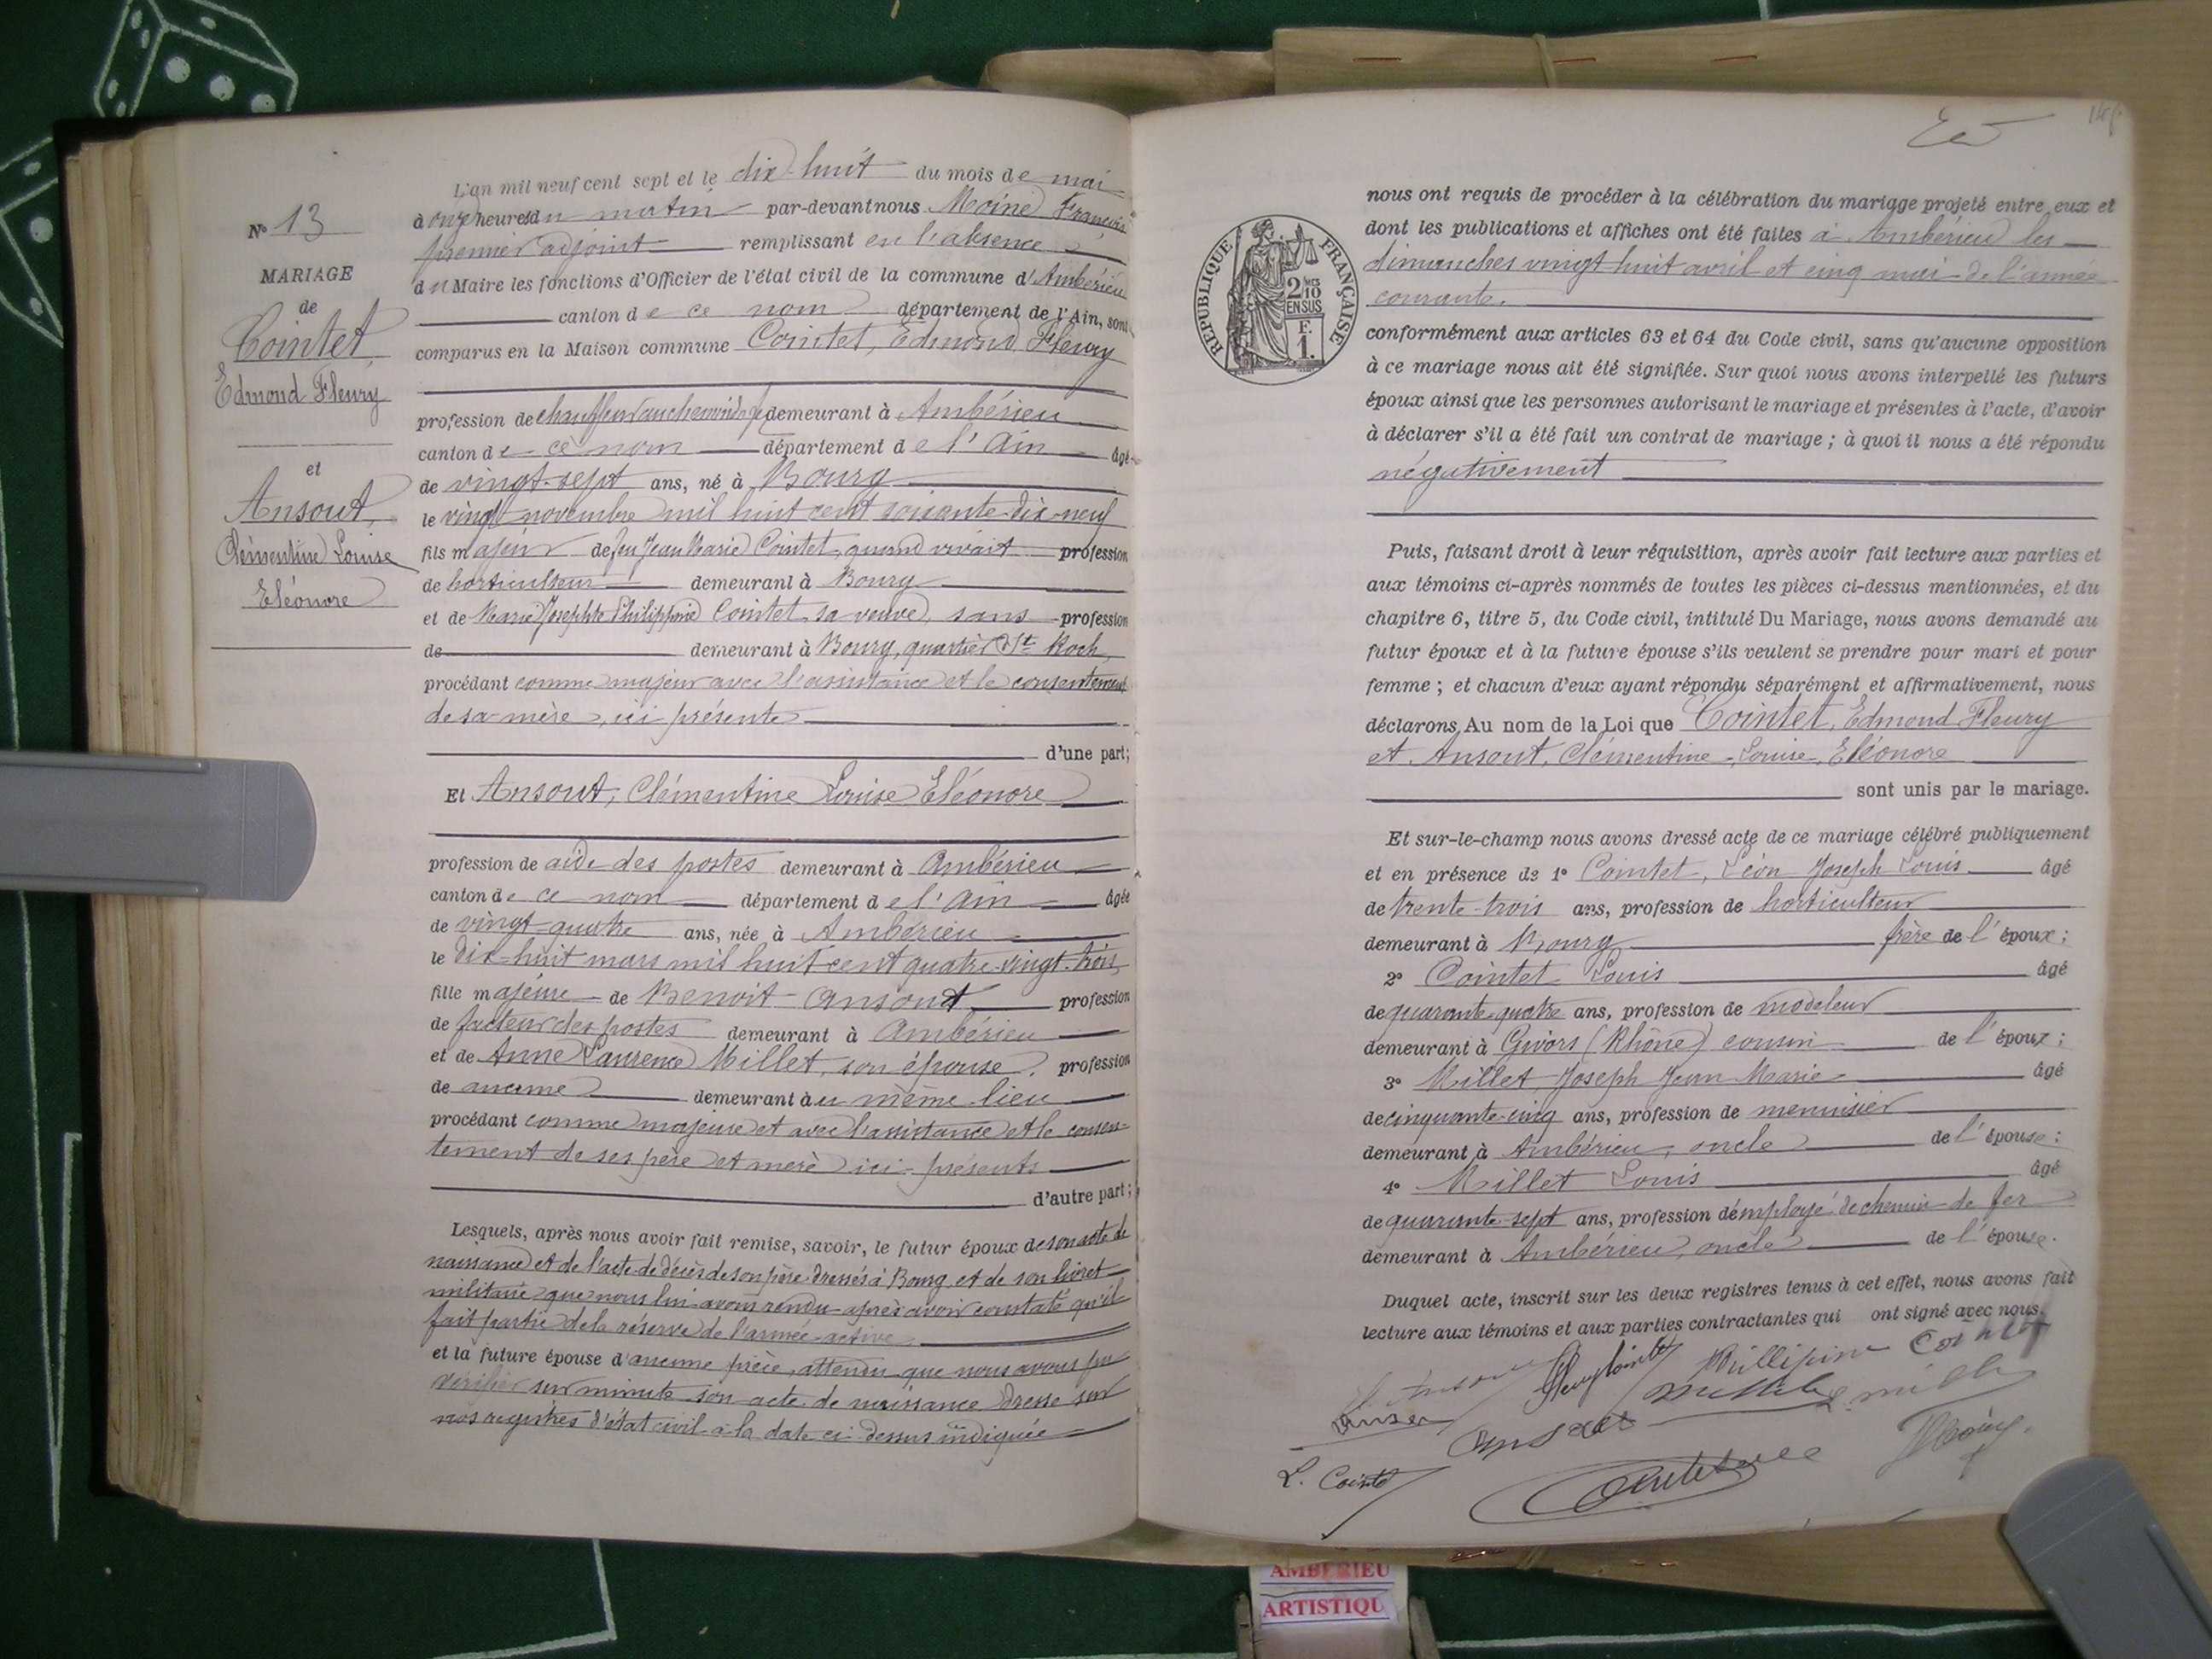 N° 13
MARIAGE
de
Cointet,
Edmond Fleury
et
Ansout,
Clémentine Louise
Eléonore
L'an mil neuf cent sept et le dix-huit du mois de mai
à onze heures du matin par-devant nous Moine François
premier adjoint remplissant en l'absence
du Maire les fonctions d'Officier de l'état civil de la commune d'Ambérieu
canton de ce nom département de l'Ain, sont
comparus en la Maison commune Cointet, Edmond Fleury
profession de chauffeur au chemin de f demeurant à Ambérieu
canton de ce nom département de l'Ain âgé
de vingt-sept ans, né à Bourg
le vingt novembre mil huit cent soixante-dix-neuf
fils majeur de feu Jean Marie Cointet, quand vivait profession
de horticulteur demeurant à Bourg
et de Marie Josephte Philippine Cointet sa veuve, sans profession
de demeurant à Bourg, quartier St Roch,
procédant comme majeur avec l'assistance et le consentement
de sa mère, ici présente
d'une part;
Et Ansout, Clémentine Louise Eléonore
profession de aide des postes demeurant à Ambérieu
canton de ce nom département de l'Ain âgée
de vingt-quatre ans, née à Ambérieu
le dix-huit mars mil huit cent quatre-vingt-trois
fille majeure de Benoit Ansout profession
de facteur des postes demeurant à Ambérieu
et de Anne Laurence Millet, son épouse, profession
de aucune demeurant au même lieu
procédant comme majeure et avec l'assistance et le consen-
tement de ses père et mère ici présents
d'autre part;
Lesquels, après nous avoir fait remise, savoir, le futur époux de son acte de
naissance et de l'acte de décès de son père dressés à Bourg et de son livret
militaire que nous lui avons rendu après avoir constaté qu'il
fait partie de la réserve de l'armée active
et la future épouse d'aucune pièce, attendu que nous avons pu
vérifier sur minute son acte de naissance dressé sur
nos registres d'état civil à la date ci-dessus indiquée
RÉPUBLIQUE FRANÇAISE
2/10
EN SUS
F.
1.
nous ont requis de procéder à la célébration du mariage projeté entre eux et
dont les publications et affiches ont été faites à Ambérieu les
dimanches vingt-huit avril et cinq mai de l'année
courante.
conformément aux articles 63 et 64 du Code civil, sans qu'aucune opposition
à ce mariage nous ait été signifiée. Sur quoi nous avons interpellé les futurs
époux ainsi que les personnes autorisant le mariage et présentes à l'acte, d'avoir
à déclarer s'il a été fait un contrat de mariage ; à quoi il nous a été répondu
négativement
Puis, faisant droit à leur réquisition, après avoir fait lecture aux parties et
aux témoins ci-après nommés de toutes les pièces ci-dessus mentionnées, et du
chapitre 6, titre 5, du Code civil, intitulé Du Mariage, nous avons demandé au
futur époux et à la future épouse s'ils veulent se prendre pour mari et pour
femme ; et chacun d'eux ayant répondu séparément et affirmativement, nous
déclarons Au nom de la Loi que Cointet, Edmond Fleury
et Ansout, Clémentine Louise, Eléonore
sont unis par le mariage.
Et sur-le-champ nous avons dressé acte de ce mariage célébré publiquement
et en présence de 1° Cointet, Léon Joseph Louis âgé
de trente-trois ans, profession de horticulteur
demeurant à Bourg frère de l'époux ;
2° Cointet Louis âgé
de quarante-quatre ans, profession de modeleur
demeurant à Givors (Rhône) cousin de l'époux ;
3° Millet Joseph Jean Marie âgé
de cinquante-cinq ans, profession de menuisier
demeurant à Ambérieu, oncle de l'épouse ;
4° Millet Louis âgé
de quarante-sept ans, profession d'employé de chemin de fer
demeurant à Ambérieu, oncle de l'épouse.
Duquel acte, inscrit sur les deux registres tenus à cet effet, nous avons fait
lecture aux témoins et aux parties contractantes qui ont signé avec nous.
Fleury Cointet Philipine Cointet
Ansout Millet
L. Cointet
AMBERIEU
ARTISTIQU